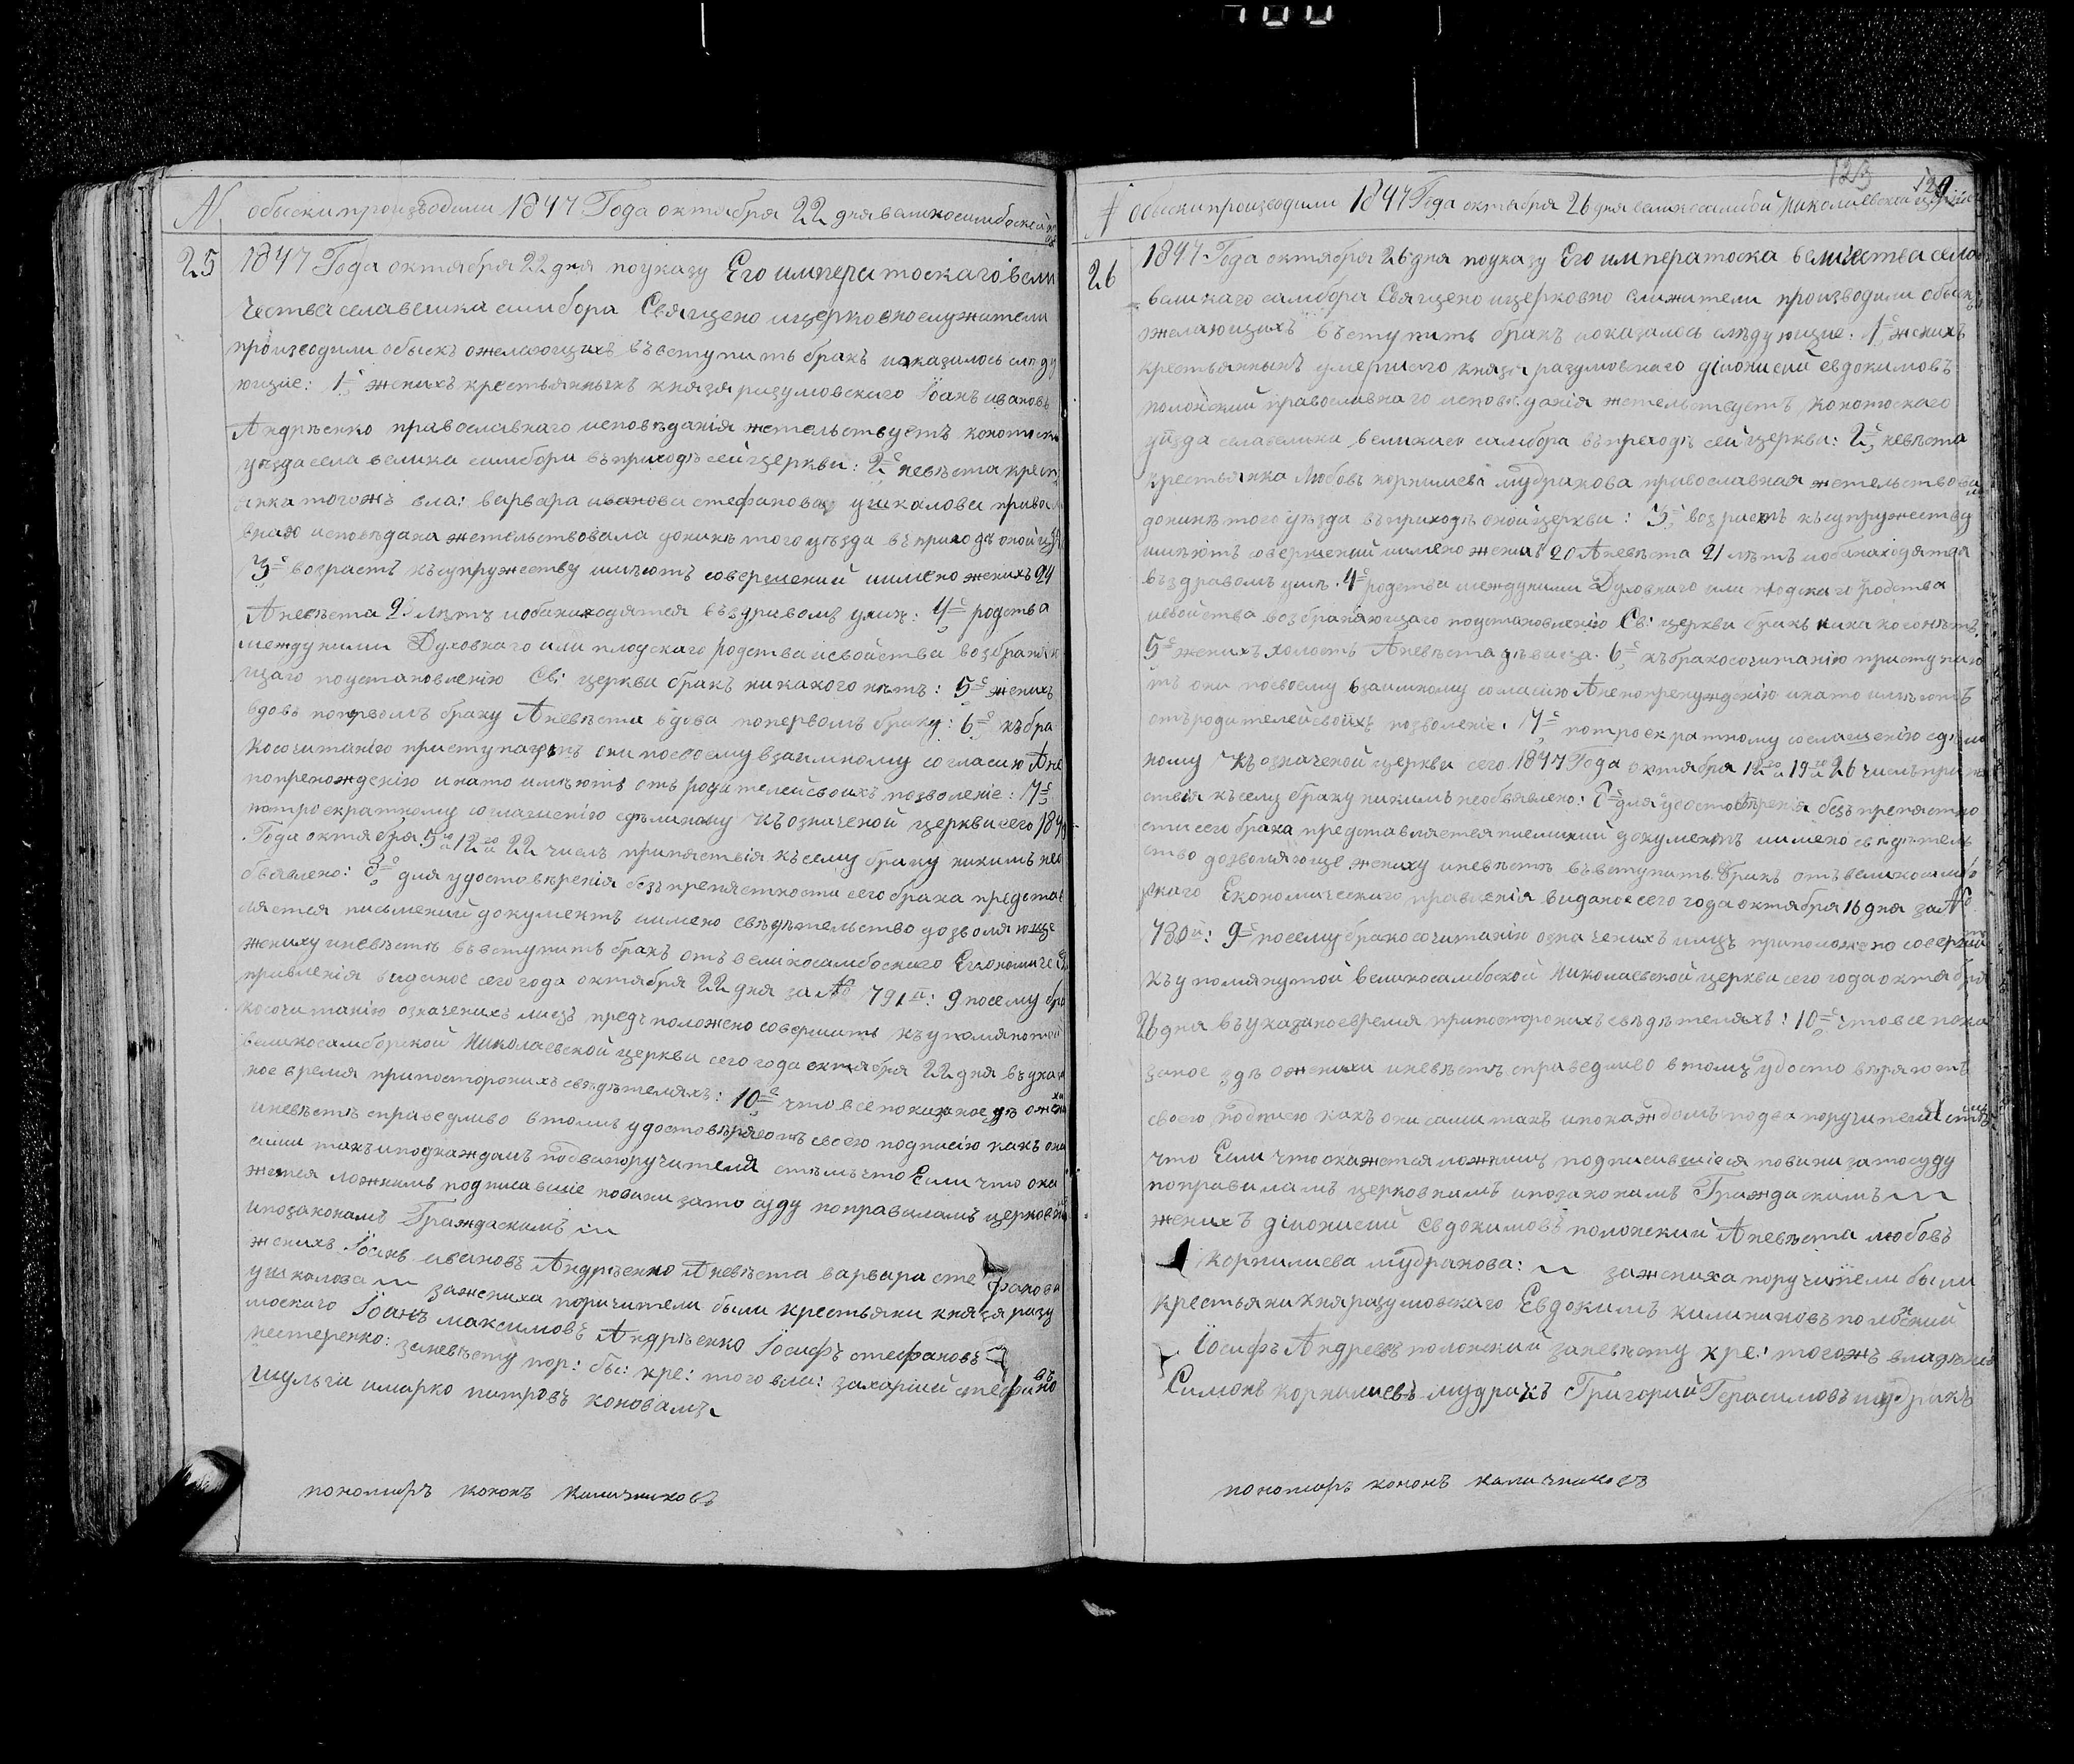 N обыски производили 1847 Года октября 22 дня великосамбоской
25 1847 Года октября 22 дня поуказу Его императоскаго вели
чества селавелика самбора Священо ицерковнослужители
производили обыскъ ожелающихъ въвступить бракъ иоказалось слѣду
ющие: 1е женихъ крестьянинъ князя разумовскаго Іоанъ ивановъ
Андрѣенко православнаго исповѣданія жетельствуетъ конотоска
уѣзда села велика самбора въприходѣ сей церкви: 2е невѣста крест
янка тогожъ вла: варвара стефанова ушкалова правос
внаго исповѣдана жетельствовала донинѣ того уѣзда въ приходѣ оной цер
3е возрастъ къ супружеству имѣютъ совершений имено женихъ 24
Аневѣста лѣтъ иобанаходятся въздравомъ умѣ: 4е родства
междуними Духовнаго или плодскаго родства исвойства возбраняю
щаго поустановленію Св: церкви бракъ никакого нѣтъ: 5е женихъ
вдовъ попервомъ браку Аневѣста вдова попервомъ браку: 6е къ бра
косочитанію приступаютъ они посвоему взаимному согласию Ане
попренождению инато имѣютъ отъ родителей своихъ позволеніе: 7е
потроекратному согласиению сдѣланому къ означеной церкви сего 184
Года октября 5го 12го и 22 числъ припятствія къ сему браку никимъ нео
обявлено: 8е для удостовѣренія безъ препятстности сего брака представ
ляется писмений документъ имено свѣдѣтельство дозволяюще
жениху иневѣстѣ въвступить бракъ отъ великосамбоскаго Економиче
правленія виданое сего года октября 22 дня за № 791й: 9 посему бра
косочитанію означенихъ лицъ предъположено совершить къ упомянутой
великосамборской Николаевской церкви сего года октября 22 дня въ указ
ное время припосторонихъ свѣдѣтеляхъ: 10е что все показаное здѣ ожених
иневѣстѣ справедливо втомъ удостовѣряютъ своею подписію какъ они
сами такъ иподкаждомъ подвапоручителя стѣмъ что Если что ока
жется ложнимъ подписавшіе повини зато суду поправиламъ церковн
ипозаконамъ Граждаскимъ
женихъ Іоанъ ивановъ Андрѣенко Аневѣста варвара стефанова
ушкалова зажениха поручители были крестьяни князя разу
москаго Іоанъ максимовъ Андрѣенко Іосифъ стефановъ
нестеренко: заневѣсту пор: бы: кре: того вла: захарий стефановъ
шульга имарко питровъ коновалъ
пономаръ кононъ калашниковъ
123 129
№ обыски производили 1847 Года октября 26 дня великосамбой николаевской церкви
26 1847 Года октября 26 дня поуказу Его императоска величества села
великаго самбора Священо ицерковно служители производили обыскъ
ожелающихъ въступить бракъ показалось слѣдующие: 1е женихъ
крестьянинъ умершаго князя разумовскаго діонисий евдокимовъ
полонский православнаго исповѣданія жетельствуетъ конотоскаго
уѣзда великаго самбора въ преходѣ сей церкви: 2е невѣста
крестьянка Любовъ корнилиева мудракова православная жетельствова
донинѣ того уѣзда въприходѣ оной церкви: 3е возрастъ къ супружеству
имѣютъ совершений имено женихъ 20 Аневѣста 21 лѣтъ иобанаходятся
въздравомъ умѣ. 4е родства междуними Духовнаго или плодскаго родства
исвойства возбраняющаго поустановленію Св: церкви бракъ никакого нѣтъ.
5е женихъ холостъ Аневѣста дѣвица. 6е къ бракосочитанію приступаю
тъ они посвоему взаимному согласію Анепопренуждению инато имѣютъ
отъ родителей своихъ позволеніе. 7е потроекратному согласиению сдѣла
ному къ означеной церкви сего 1847 Года октября 12го 19го и 26 числъ припя
ствія къ сему браку никимъ необявлено: 8е для удостовѣренія безъ препятстно
сти сего брака представляется писмений документъ имено свѣдѣтель
ство дозволяюще жениху иневѣстѣ въвступить бракъ отъ великосамбо
скаго Економическаго правленія виданое сего года октября 16 дня за №
780й: 9е посему бракосочитанію означенихъ лицъ приположено соверши
къ упомянутой великосамбоской Николаевской церкви сего года октября
26 дня въ указаное время припосторонихъ свѣдѣтеляхъ: 10е что все пока
заное здѣ ожениха иневѣстѣ справедливо втомъ удостовѣряютъ
своею подписю какъ они сами такъ ипокаждомъ подва поручителя стѣмъ
что Если что окажется ложнимъ подписавшіеся повини зато суду
поправиламъ церковнимъ ипозаконамъ Граждаскимъ
женихъ діонисий евдокимовъ полонский Аневѣста любовъ
корнилиева мудракова: зажениха поручители были
крестьяни кня разумовскаго Евдокимъ калиниковъ полонский
Іосифъ Андреевъ полонский заневѣсту кре: тогожъ владѣнія
Симонъ корнилиевъ мудракъ Григорий Герасимовъ мудракъ
пономаръ кононъ калашниковъ